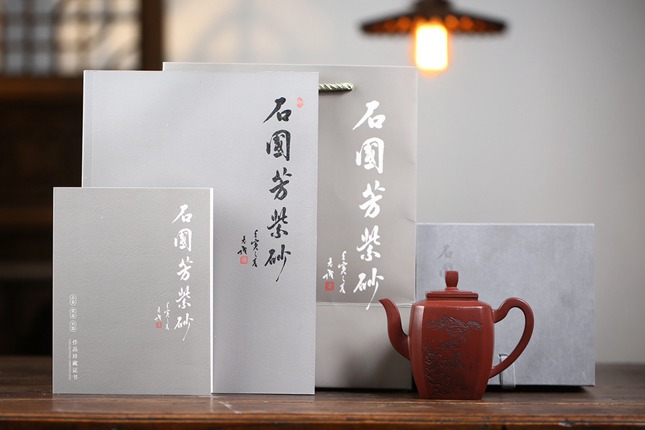 石園芳紫砂
壬寅之夏
石園芳紫砂
壬寅之夏
石園芳紫砂
壬寅之夏
作品珍藏证书
石園